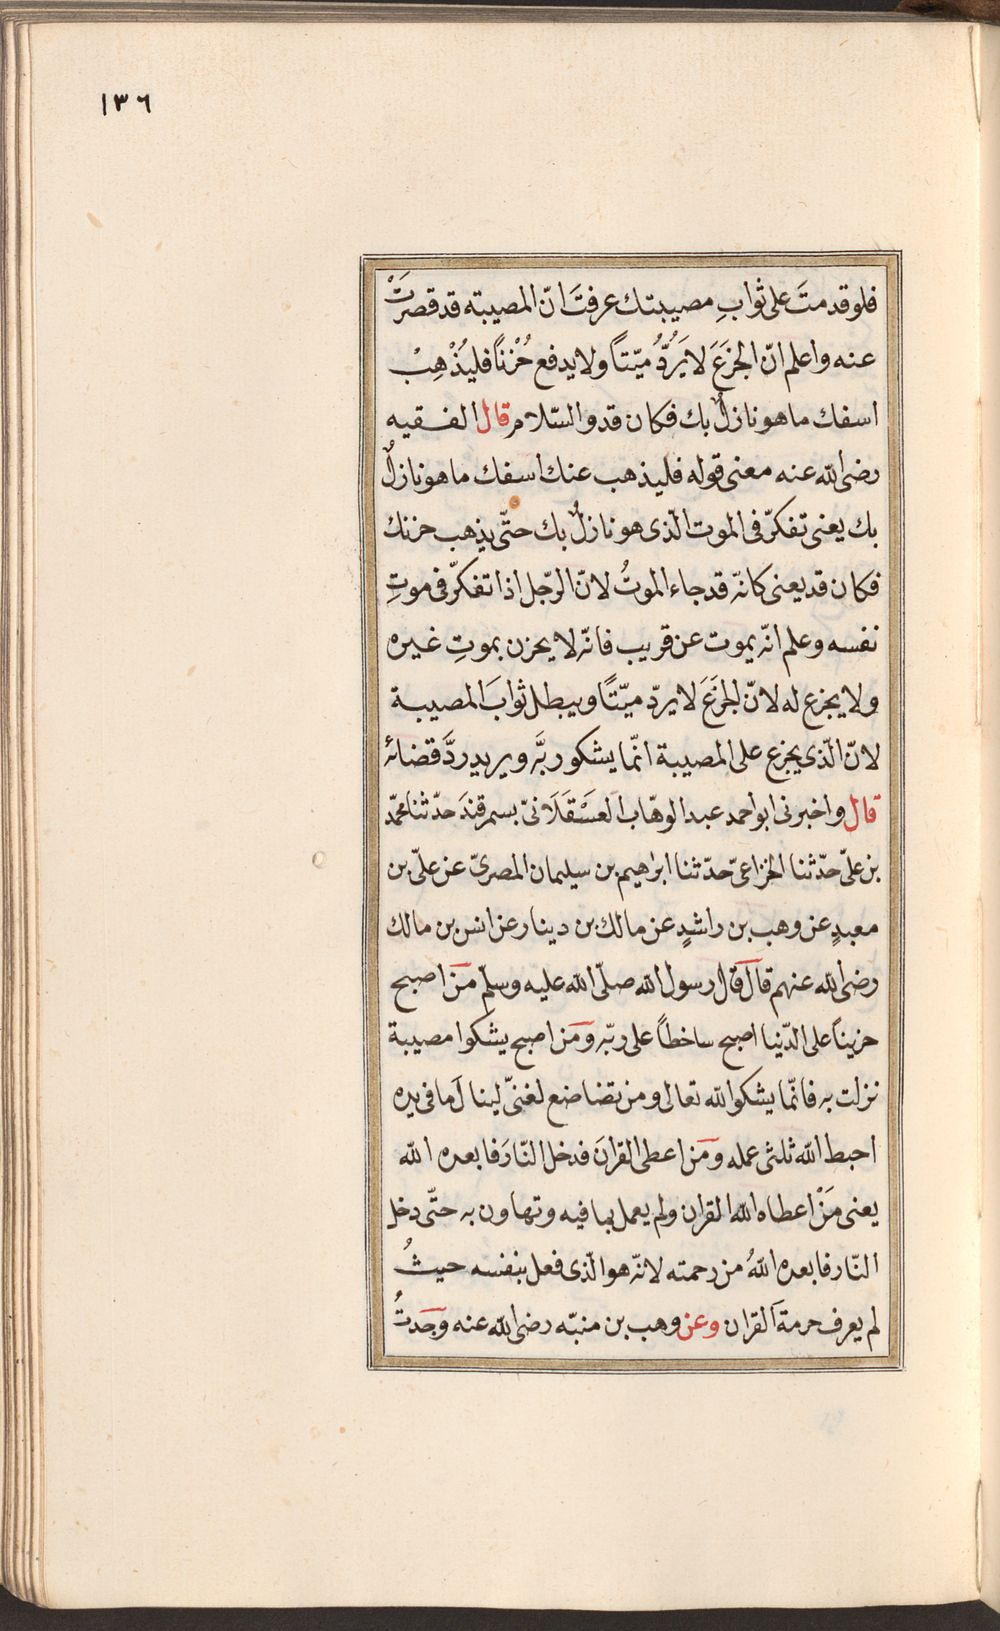 ١٣٦
فلو قدمتَ على ثوابِ مصيبتك عرفتَ انّ المصيبته قد قصرَتْ
عنه واعلم انّ الجزَعَ لا يَرُدُّ ميّتاً ولا يدفع حُزْناً فليُذْهِبْ
اسفك ما هو نازلٌ بك فكان قد والسّلام قال الفقيه
رضى الله عنه معنى قوله فليذهب عنك اسفك ما هو نازلٌ
بك يعنى تفكرّ فى الموت الّذى هو نازلٌ بك حتّى يذهب حزنك
فكان قد يعنى كانّه قد جاء الموتُ لانّ الرّجل اذا تفكرّ فى موتِ
نفسه وعلم انّه يموت عن قريب فانّه لا يحزن بموتِ غيره
ولا يجزع له لانّ الجزَعَ لا يردّ ميّتاً ويبطل ثوابَ المصيبة
لانّ الّذى يجزع على المصيبة انّما يشكو ربَّه ويريد ردَّ قضائه
قال واخبرنى ابو احمد عبد الوهّاب العسَقَلَانىّ بسمرقندَ حدّثنا محمّد
بن علىّ حدّثنا الخزاعىّ حدّثنا ابرٰهيم بن سليمان المصرىّ عن علىّ بن
معبدٍ عن وهب بن راشدٍ عن مالك بن دينار عن انس بن مالك
رضى الله عنهم قال قال رسول الله صلّى الله عليه وسلّم مَن اصبح
حزيناً على الدّنيا اصبح ساخطاً على ربّه ومَن اصبح يشكوا مصيبة
نزلت به فانّما يشكوا الله تعالى ومن تضاضع لغنىّ لينالَ ما فى يده
احبط الله ثلثى عمله ومَن اعطى القرانَ فدخل النّارَ فابعده الله
يعنى مَنْ اعطاه الله القران ولم يعمل بما فيه وتهاون به حتّى دخل
النّار فابعده اللهُ من رحمته لانّه هو الّذى فعل بنفسه حيثُ
لم يعرف حرمة القران وعن وهب بن منبّه رضى الله عنه وجَدتُ